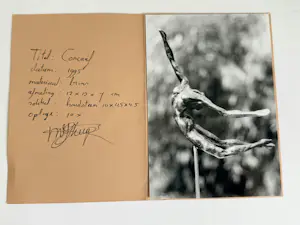 Titel: Concave
datum: 1995
materiaal: brons
afmeting: 17 x 13 x 7 cm
sokkel: hardsteen
oplage: 10 x